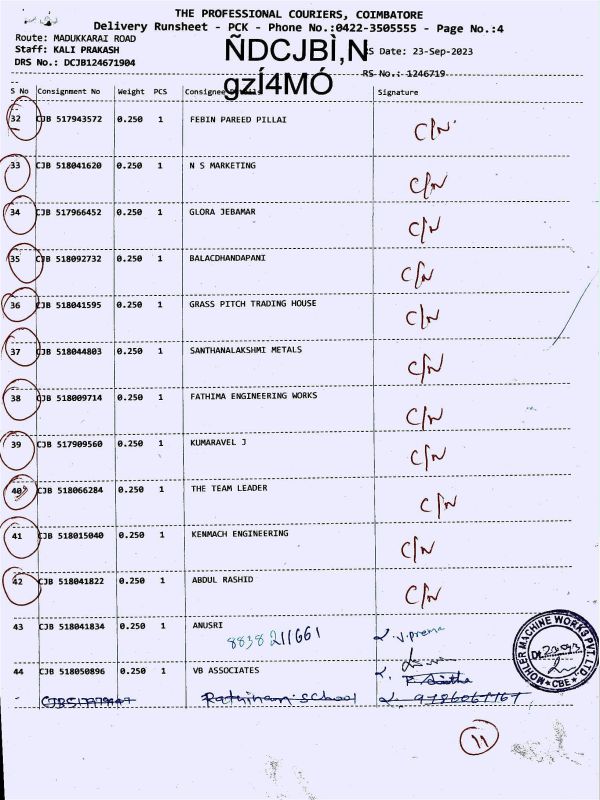 THE PROFESSIONAL COURIERS, COIMBATORE
Delivery Runsheet - PCK - Phone No.:0422-3505555 - Page No.:4
Route: MADUKKARAI ROAD
Staff: KALI PRAKASH ÑDCJBÌ,N RS Date: 23-Sep-2023
DRS No.: DCJB124671904 gzÍ4MÓ RS No.: 1246719
S No Consignment No Weight PCS Consignee Details Signature
32 CJB 517943572 0.250 1 FEBIN PAREED PILLAI C/N
33 CJB 518041620 0.250 1 N S MARKETING C/N
34 CJB 517966452 0.250 1 GLORA JEBAMAR C/N
35 CJB 518092732 0.250 1 BALACDHANDAPANI C/N
36 CJB 518041595 0.250 1 GRASS PITCH TRADING HOUSE C/N
37 CJB 518044803 0.250 1 SANTHANALAKSHMI METALS C/N
38 CJB 518009714 0.250 1 FATHIMA ENGINEERING WORKS C/N
39 CJB 517909560 0.250 1 KUMARAVEL J C/N
40 CJB 518066284 0.250 1 THE TEAM LEADER C/N
41 CJB 518015040 0.250 1 KENMACH ENGINEERING C/N
42 CJB 518041822 0.250 1 ABDUL RASHID C/N
43 CJB 518041834 0.250 1 ANUSRI
8838 211661 J. Prema
44 CJB 518050896 0.250 1 VB ASSOCIATES
Rathinam school
11
MACHINE WORKS PVT. LTD.
CBE